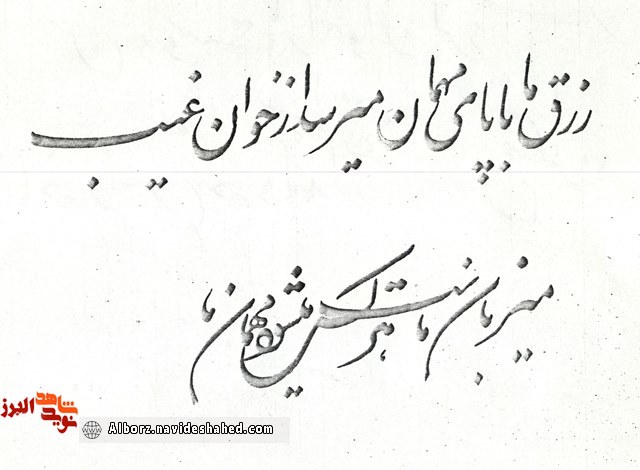 رزق ما با پای مهمان میرسد از خوان غیب
میزبان ماست هر کس میشود مهمان ما
شاهد
نوید
البرز
Alborz.navideshahed.com